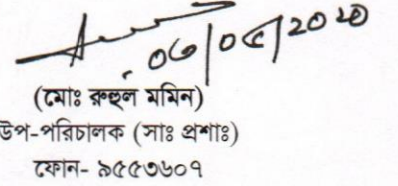 ০৬/০৫/২০২০
(মোঃ রুহুল মমিন)
উপ-পরিচালক (সাঃ প্রশাঃ)
ফোন- ৯৫৫৩৬০৭